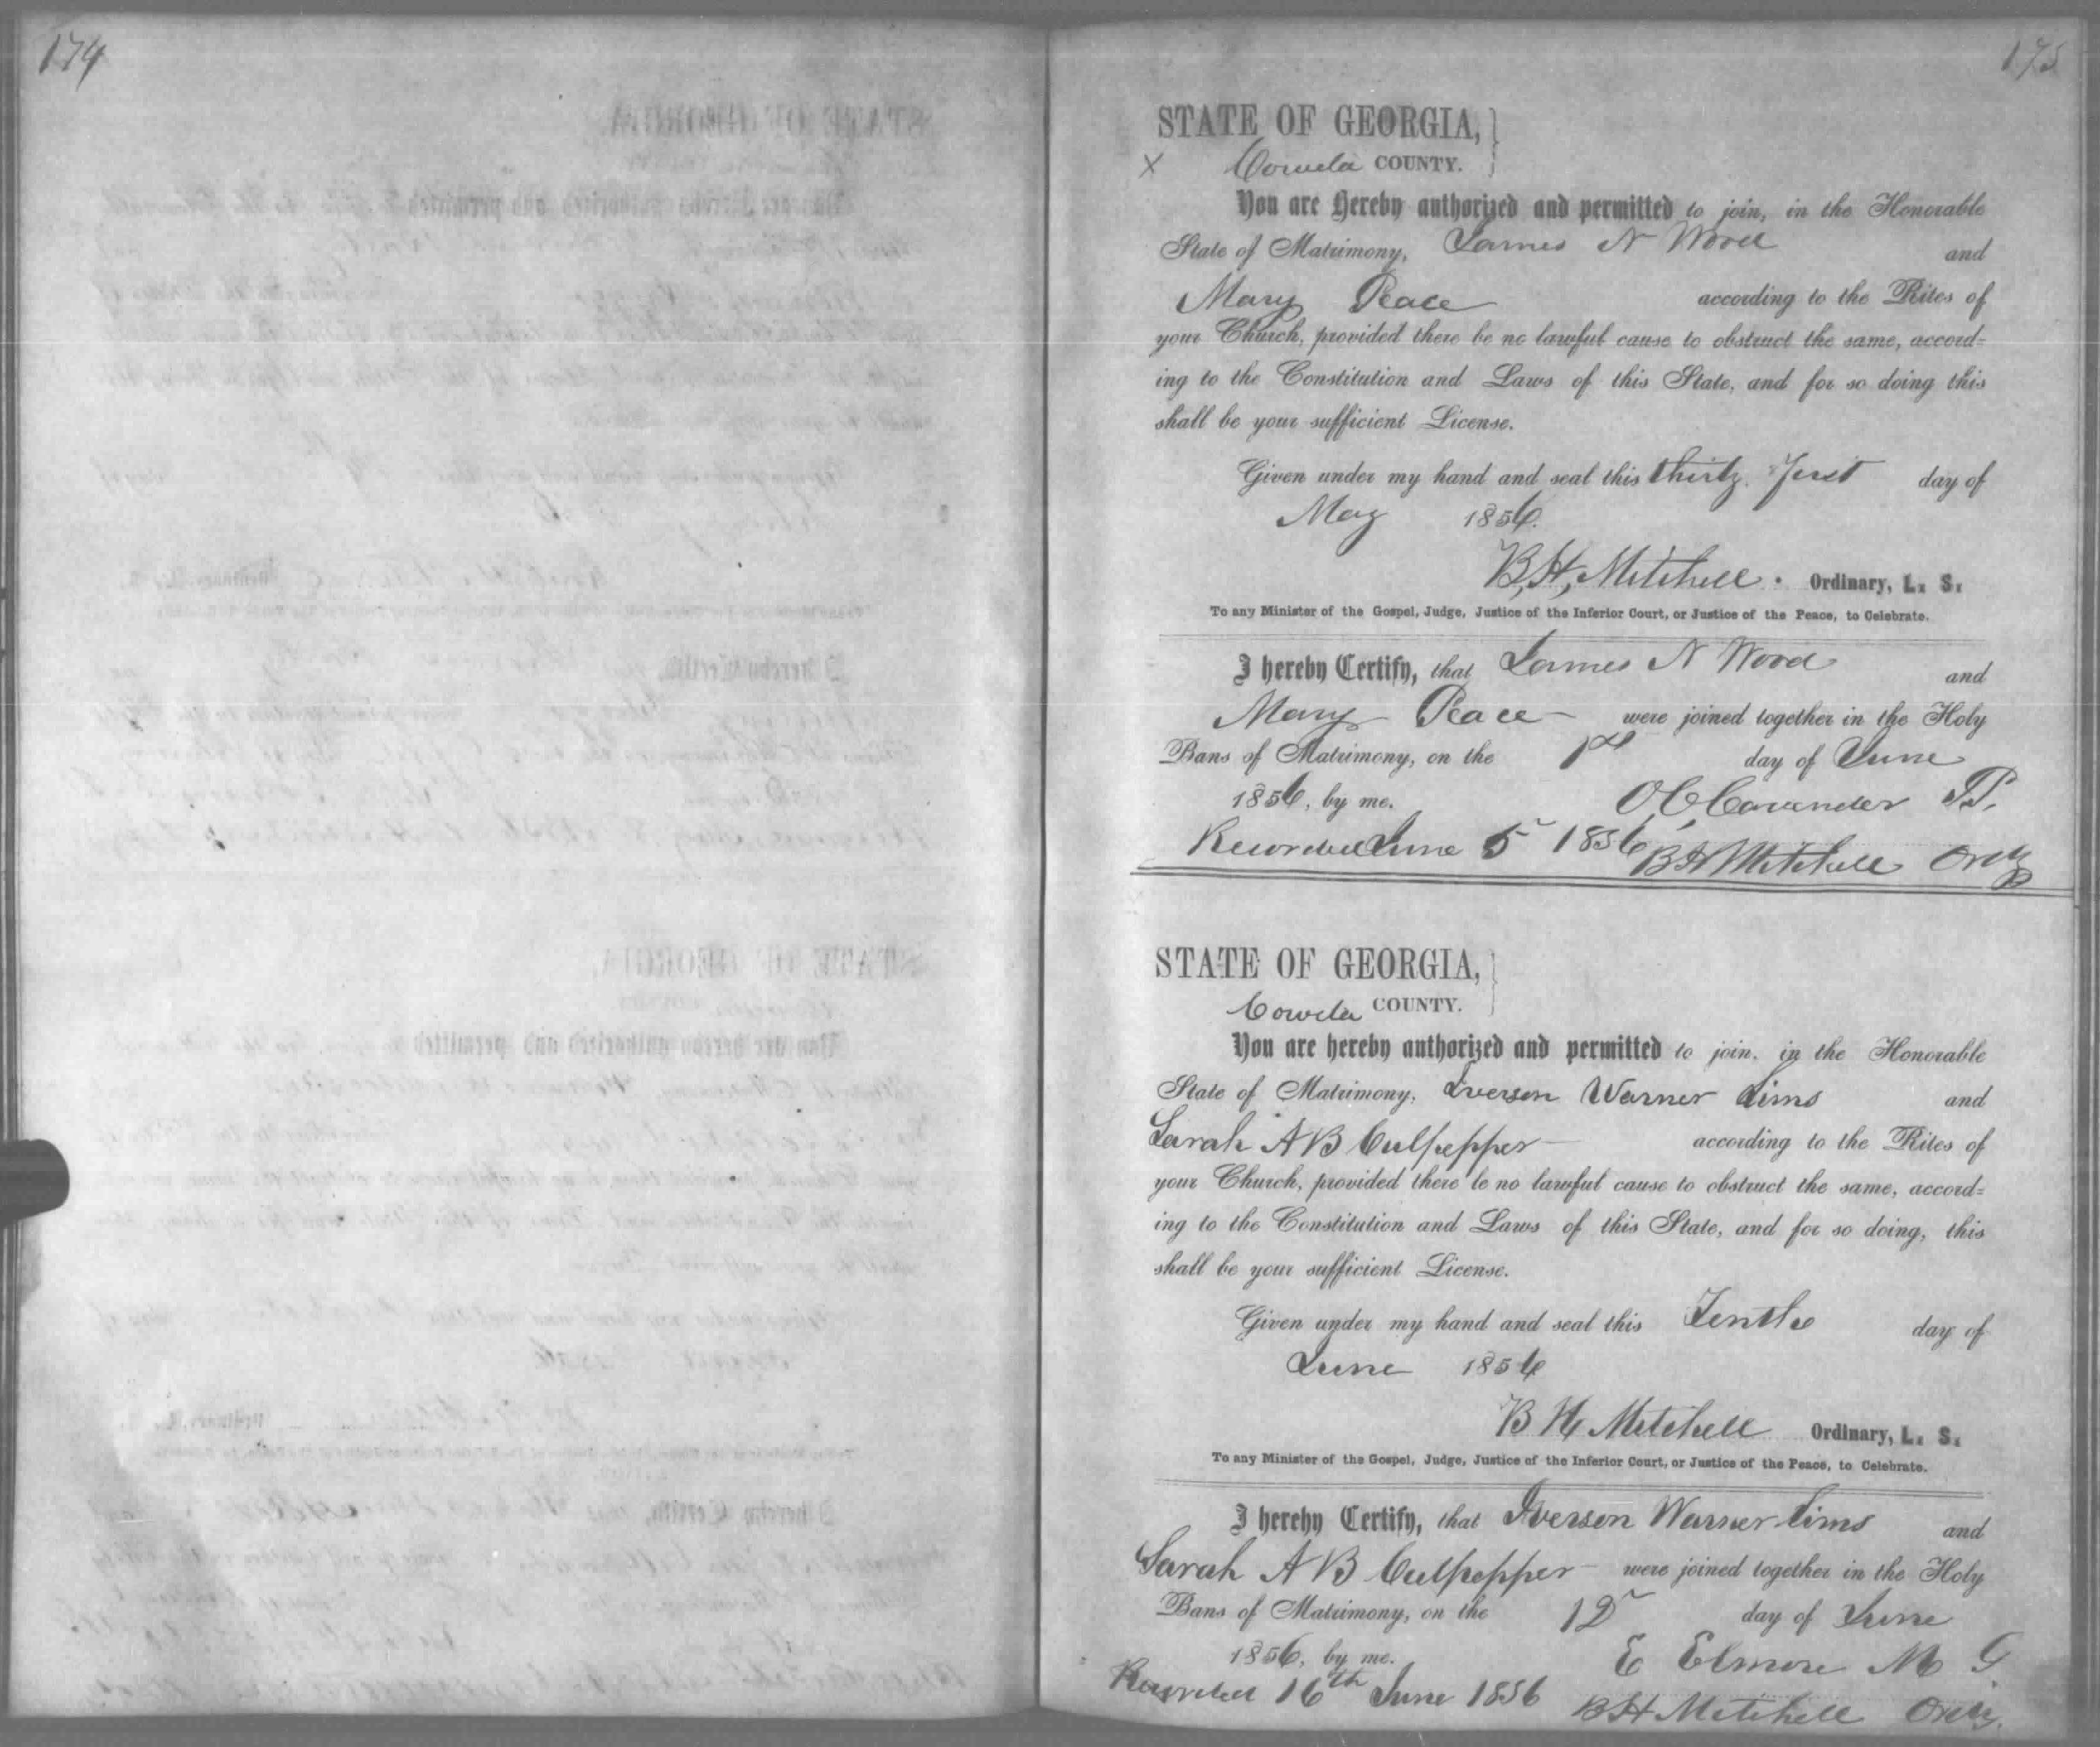 174
175
STATE OF GEORGIA,
X Coweta COUNTY.
You are Hereby authorized and permitted to join, in the Honorable
State of Matrimony, James N Wood and
Mary Peace according to the Rites of
your Church, provided there be no lawful cause to obstruct the same, accord=
ing to the Constitution and Laws of this State, and for so doing this
shall be your sufficient License.
Given under my hand and seal this thirty first day of
May 1856.
B, H, Mitchell. Ordinary, L. S.
To any Minister of the Gospel, Judge, Justice of the Inferior Court, or Justice of the Peace, to Celebrate.
I hereby Certify, that James N Wood and
Mary Peace were joined together in the Holy
Bans of Matrimony, on the 1st day of June
1856, by me. O C Cavender
Recorded June 5 1856, B H Mitchell Ordy
STATE OF GEORGIA,
Coweta COUNTY.
You are hereby authorized and permitted to join, in the Honorable
State of Matrimony, Iverson Warner Sims and
Sarah A B Culpepper according to the Rites of
your Church, provided there be no lawful cause to obstruct the same, accord=
ing to the Constitution and Laws of this State, and for so doing, this
shall be your sufficient License.
Given under my hand and seal this Tenth day of
June 1856
B H Mitchell Ordinary, L. S.
To any Minister of the Gospel, Judge, Justice of the Inferior Court, or Justice of the Peace, to Celebrate.
I hereby Certify, that Iverson Warner Sims and
Sarah A B Culpepper were joined together in the Holy
Bans of Matrimony, on the 12 day of June
1856, by me. E Elmore M G
Recorded 16th June 1856 B H Mitchell Ordy.